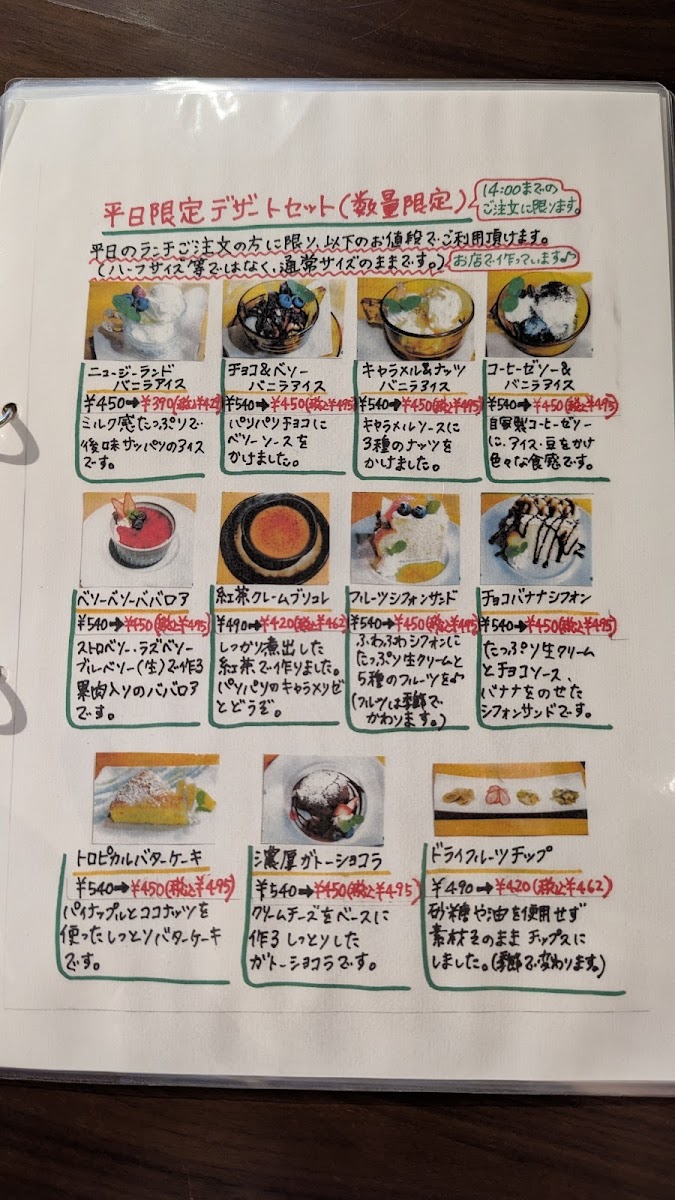 平日限定デザートセット(数量限定)
14:00までの
ご注文に限ります。
平日のランチご注文の方に限り、以下のお値段でご利用頂けます。
(ハーフサイズ等ではなく、通常サイズのままです。)
お店で作っています♪
ニュージーランド
バニラアイス
¥450→¥390(税込¥429
ミルク感たっぷりで
後味サッパリのアイス
です。
チョコ&ベリー
バニラアイス
¥540→¥450(税込¥495)
パリパリチョコに
ベリーソースを
かけました。
キャラメル&ナッツ
バニラアイス
¥540→¥450(税込¥495)
キャラメルソースに
3種のナッツを
かけました。
コーヒーゼリー&
バニラアイス
¥540→¥450(税込¥495)
自家製コーヒーゼリー
に、アイス・豆をかけ
色々な食感です。
ベリーベリーババロア
¥540→¥450(税込¥495)
ストロベリー、ラズベリー
ブルーベリー(生)で作る
果肉入りのババロア
です。
紅茶クレームブリュレ
¥490→¥420(税込¥462)
しっかり煮出した
紅茶で作りました。
パリパリのキャラメリゼ
とどうぞ。
フルーツシフォンサンド
¥540→¥450(税込¥495)
ふわふわシフォンに
たっぷり生クリームと
5種のフルーツを♪
(フルーツは季節で
かわります。)
チョコバナナシフォン
¥540→¥450(税込¥495)
たっぷり生クリーム
とチョコソース、
バナナをのせた
シフォンサンドです。
トロピカルバターケーキ
¥540→¥450(税込¥495)
パイナップルとココナッツを
使ったしっとりバターケーキ
です。
濃厚ガトーショコラ
¥540→¥450(税込¥495)
クリームチーズをベースに
作るしっとりした
ガトーショコラです。
ドライフルーツチップ
¥490→¥420(税込¥462)
砂糖や油を使用せず
素材そのままチップスに
しました。(季節で変わります。)